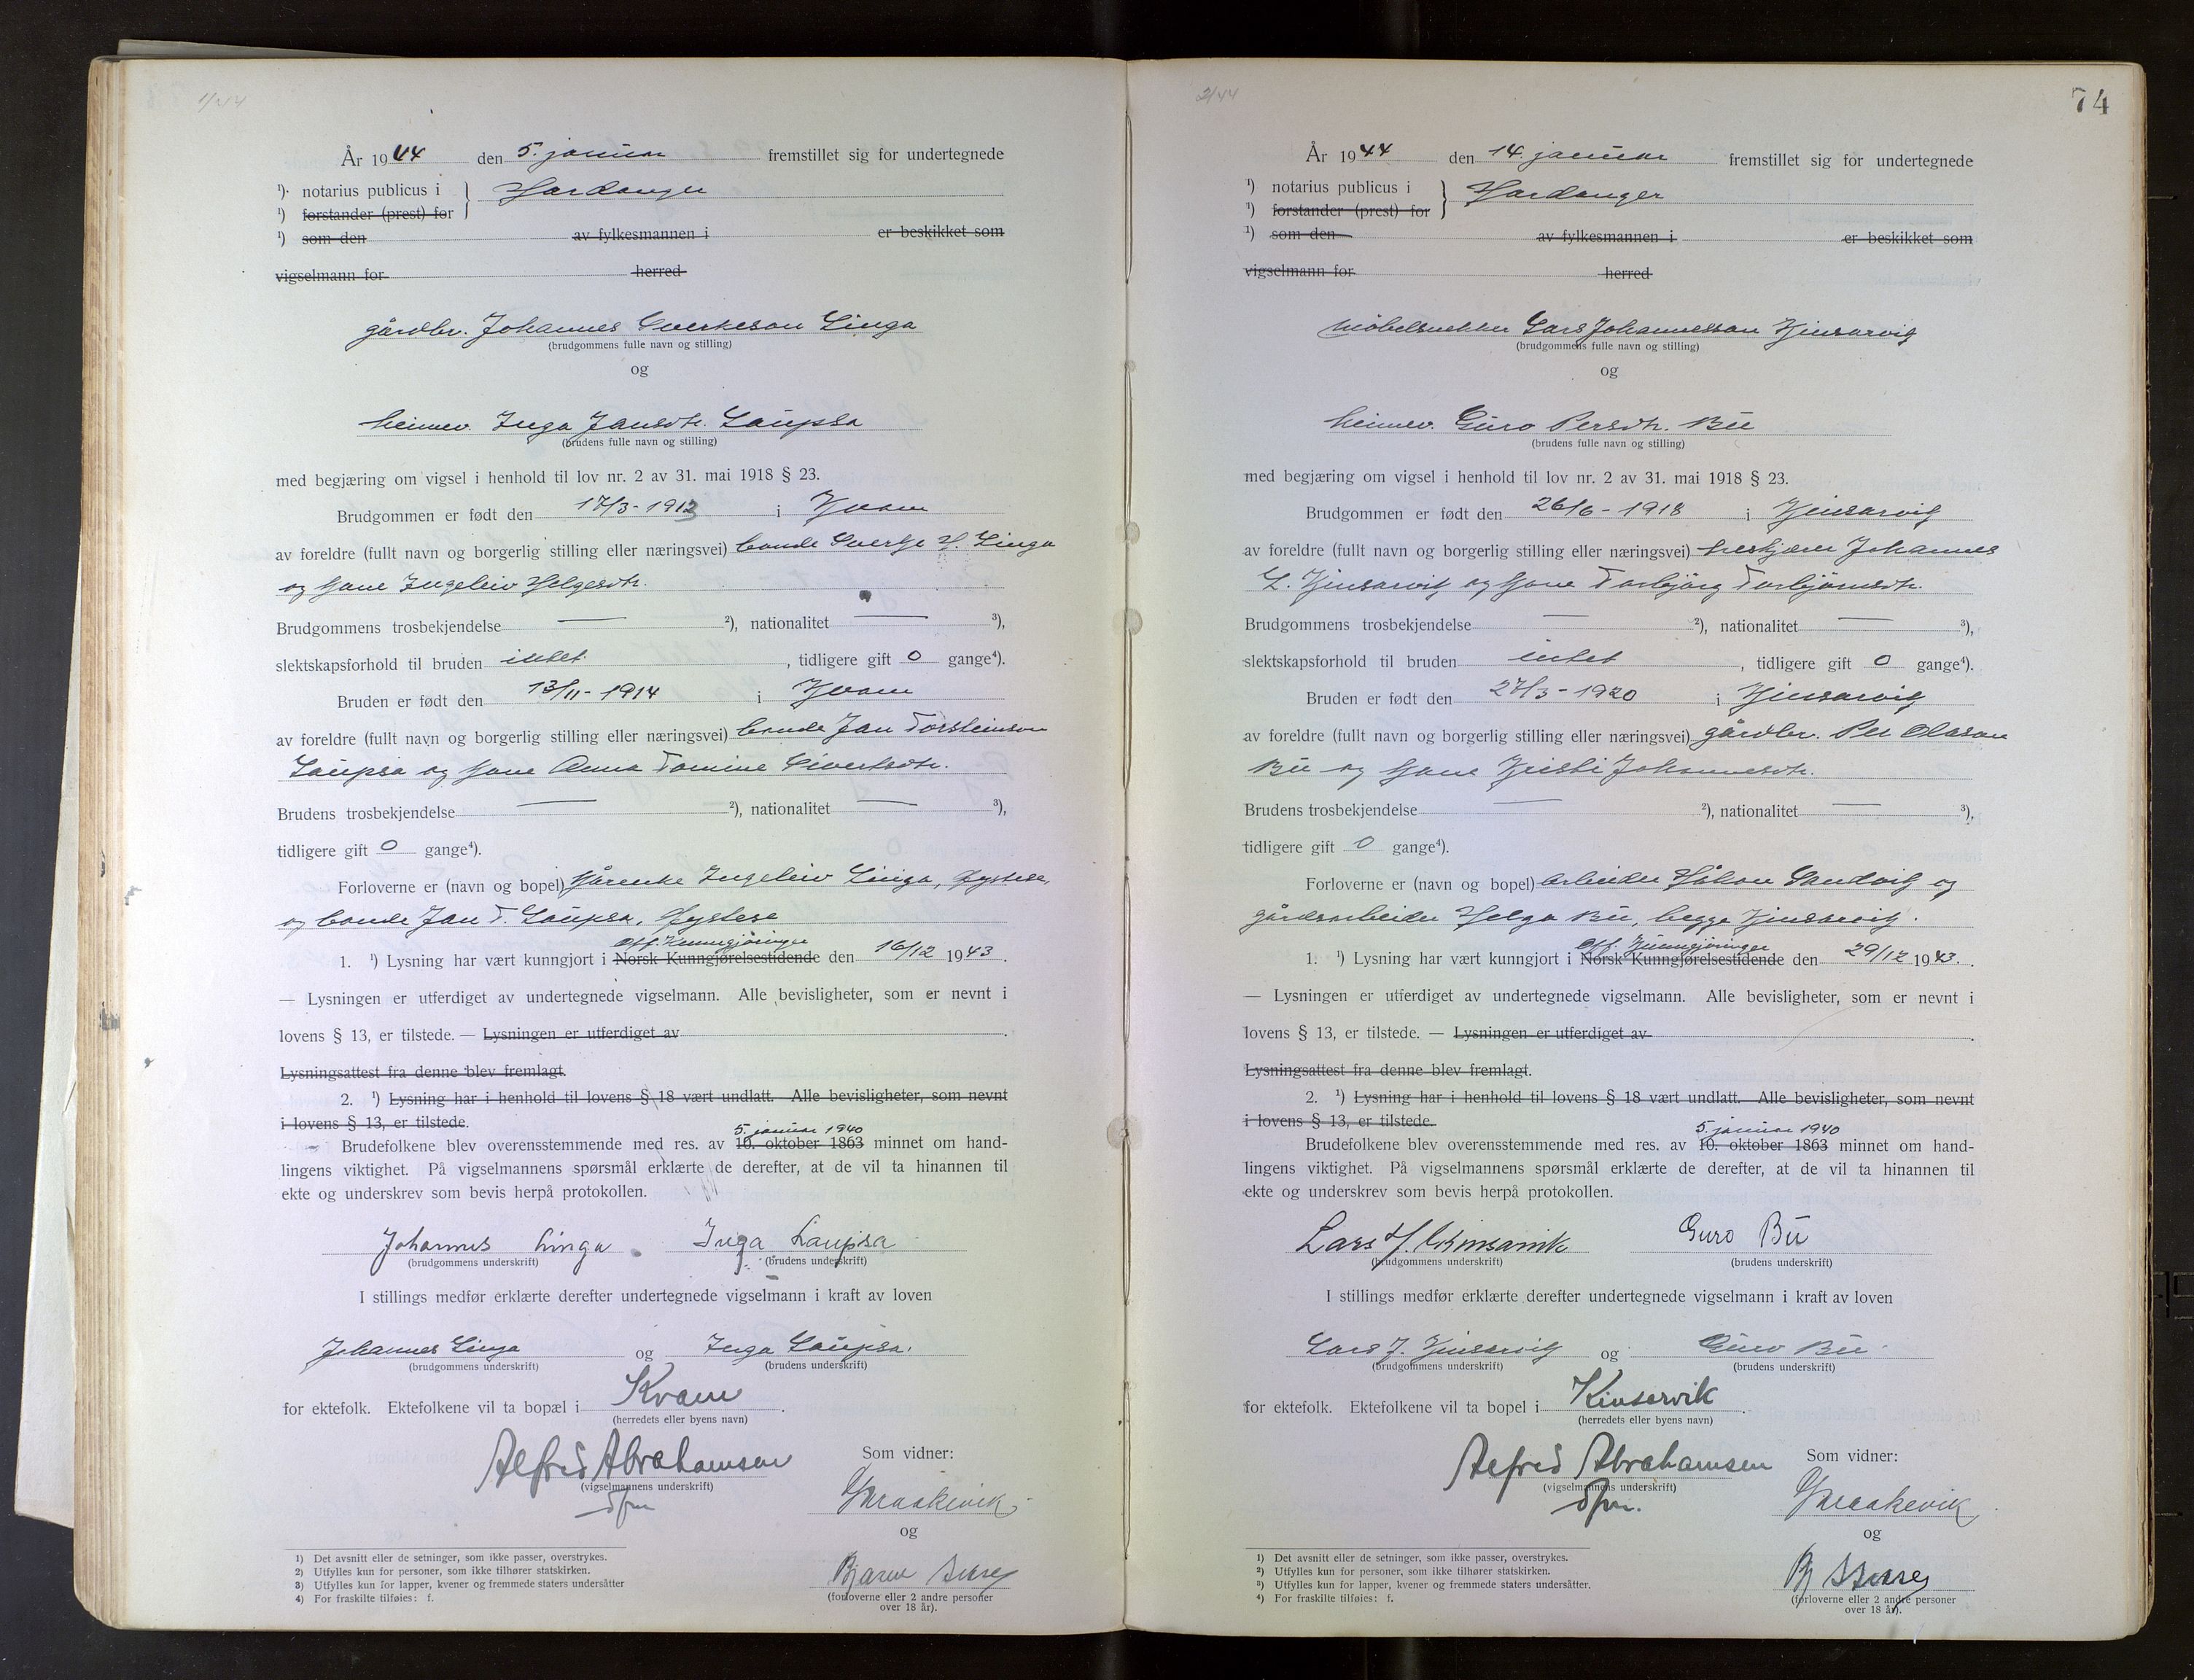 1/44
År 1944 den 5. januar fremstillet sig for undertegnede
¹) notarius publicus i } Hardanger
¹) forstander (prest) for
¹) som den av fylkesmannen i er beskikket som
vigselmann for herred
gårdbr. Johannes Sverkeson Linga
(brudgommens fulle navn og stilling)
og
heimev. Inga Jansdtr. Laupsa
(brudens fulle navn og stilling)
med begjæring om vigsel i henhold til lov nr. 2 av 31. mai 1918 § 23.
Brudgommen er født den 17/3-1913 i Kvam
av foreldre (fullt navn og borgerlig stilling eller næringsvei) bonde Sverkje H. Linga
og kone Ingeleiv Helgesdtr.
Brudgommens trosbekjendelse — ²), nationalitet — ³),
slektskapsforhold til bruden intet , tidligere gift 0 gange⁴).
Bruden er født den 13/11-1914 i Kvam
av foreldre (fullt navn og borgerlig stilling eller næringsvei) bonde Jan Torsteinson
Laupsa og kone Anna Tomine Sivertsdtr.
Brudens trosbekjendelse — ²), nationalitet — ³),
tidligere gift 0 gange⁴).
Forloverne er (navn og bopel) kårenke Ingeleiv Linga, Øystese,
og bonde Jan T. Laupsa, Øystese
Off. Kunngjøringer
1. ¹) Lysning har vært kunngjort i Norsk Kunngjørelsestidende den 16/12 1943.
— Lysningen er utferdiget av undertegnede vigselmann. Alle bevisligheter, som er nevnt i
lovens § 13, er tilstede. — Lysningen er utferdiget av .
Lysningsattest fra denne blev fremlagt.
2. ¹) Lysning har i henhold til lovens § 18 vært undlatt. Alle bevisligheter, som nevnt
i lovens § 13, er tilstede.
5. januar 1940
Brudefolkene blev overensstemmende med res. av 10. oktober 1863 minnet om hand-
lingens viktighet. På vigselmannens spørsmål erklærte de derefter, at de vil ta hinannen til
ekte og underskrev som bevis herpå protokollen.
Johannes Linga Inga Laupsa
(brudgommens underskrift) (brudens underskrift)
I stillings medfør erklærte derefter undertegnede vigselmann i kraft av loven
Johannes Linga og Inga Laupsa.
(brudgommens underskrift) (brudens underskrift)
for ektefolk. Ektefolkene vil ta bopæl i Kvam .
(herredets eller byens navn)
Alfred Abrahamsen Som vidner:
(vigselmannens underskrift)
og
Bjarne
(forloverne eller 2 andre personer
over 18 år).
1) Det avsnitt eller de setninger, som ikke passer, overstrykes.
2) Utfylles kun for personer, som ikke tilhører statskirken.
3) Utfylles kun for lapper, kvener og fremmede staters undersåtter
4) For fraskilte tilføies: f.
2/44
74
År 1944 den 14. januar fremstillet sig for undertegnede
¹) notarius publicus i } Hardanger
¹) forstander (prest) for
¹) som den av fylkesmannen i er beskikket som
vigselmann for herred
møbelsnekker Lars Johannesson Kinsarvik
(brudgommens fulle navn og stilling)
og
heimev. Guro Persdtr. Bu
(brudens fulle navn og stilling)
med begjæring om vigsel i henhold til lov nr. 2 av 31. mai 1918 § 23.
Brudgommen er født den 26/6-1918 i Kinsarvik
av foreldre (fullt navn og borgerlig stilling eller næringsvei) treskjærer Johannes
L. Kinsarvik og kone Torbjörg Torbjörnsdtr.
Brudgommens trosbekjendelse — ²), nationalitet — ³),
slektskapsforhold til bruden intet , tidligere gift 0 gange⁴).
Bruden er født den 27/3-1920 i Kinsarvik
av foreldre (fullt navn og borgerlig stilling eller næringsvei) gårdbr. Per Olason
Bu og kone Kristi Johannesdtr.
Brudens trosbekjendelse — ²), nationalitet — ³),
tidligere gift 0 gange⁴).
Forloverne er (navn og bopel) arbeider Håkon Sandvik og
gårdsarbeider Helga Bu, begge Kinsarvik.
Off. Kunngjøringer
1. ¹) Lysning har vært kunngjort i Norsk Kunngjørelsestidende den 29/12 1943.
— Lysningen er utferdiget av undertegnede vigselmann. Alle bevisligheter, som er nevnt i
lovens § 13, er tilstede. — Lysningen er utferdiget av .
Lysningsattest fra denne blev fremlagt.
2. ¹) Lysning har i henhold til lovens § 18 vært undlatt. Alle bevisligheter, som nevnt
i lovens § 13, er tilstede.
5. januar 1940
Brudefolkene blev overensstemmende med res. av 10. oktober 1863 minnet om hand-
lingens viktighet. På vigselmannens spørsmål erklærte de derefter, at de vil ta hinannen til
ekte og underskrev som bevis herpå protokollen.
Lars J. Kinsarvik Guro Bu
(brudgommens underskrift) (brudens underskrift)
I stillings medfør erklærte derefter undertegnede vigselmann i kraft av loven
Lars J. Kinsarvik og Guro Bu
(brudgommens underskrift) (brudens underskrift)
for ektefolk. Ektefolkene vil ta bopel i Kinsarvik .
(herredets eller byens navn)
Alfred Abrahamsen Som vidner:
(vigselmannens underskrift)
og
Bj
(forloverne eller 2 andre personer
over 18 år).
1) Det avsnitt eller de setninger, som ikke passer, overstrykes.
2) Utfylles kun for personer, som ikke tilhører statskirken.
3) Utfylles kun for lapper, kvener og fremmede staters undersåtter.
4) For fraskilte tilføies: f.